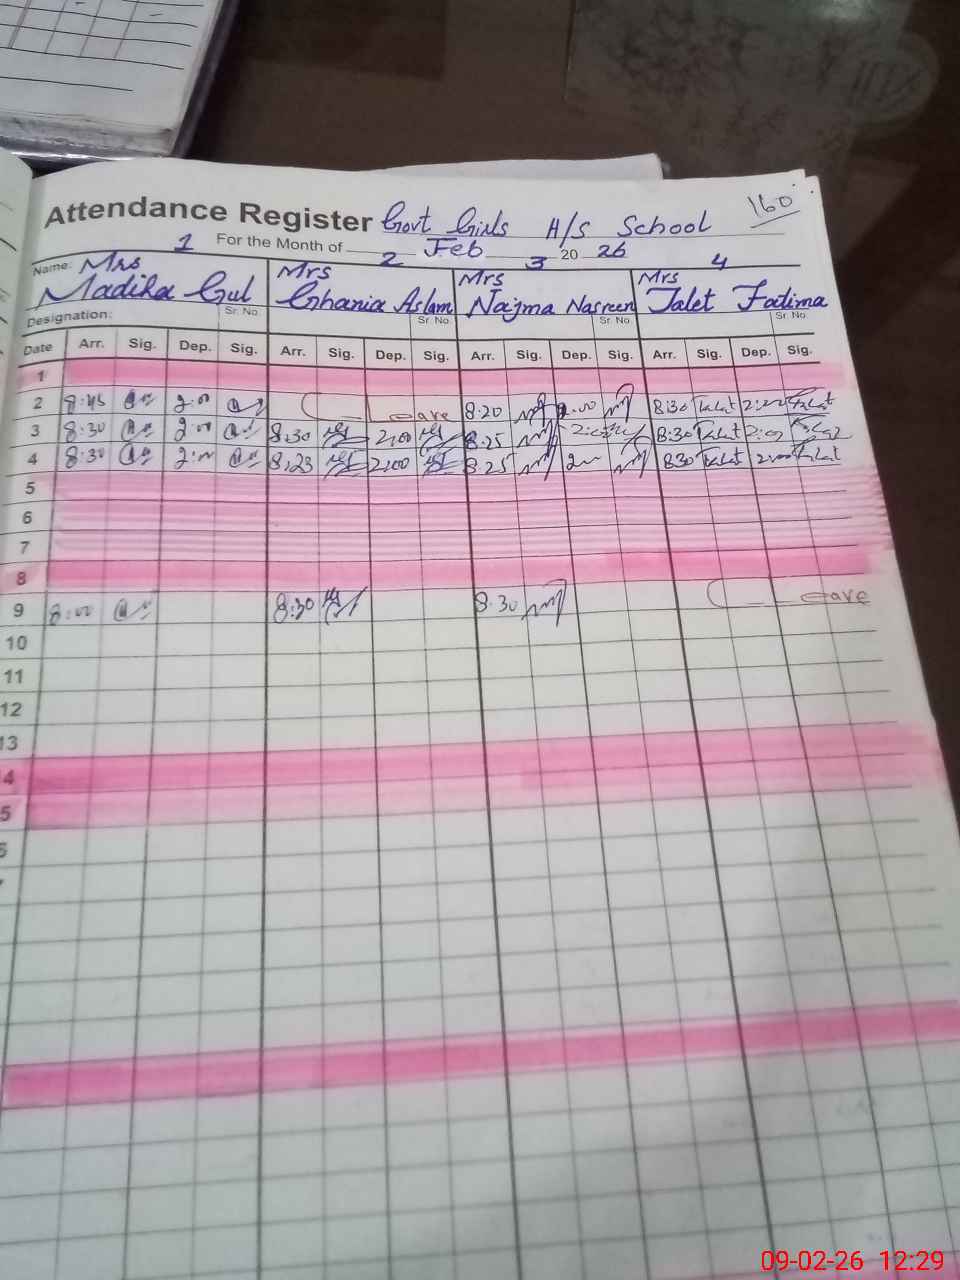 160
Attendance Register Govt Girls H/S School
For the Month of Feb 20 26
1 2 3 4
Name: Mrs Madiha Gul Mrs Ghania Aslam Mrs Najma Nasreen Mrs Talet Fatima
Designation: Sr. No. Sr. No. Sr. No. Sr. No.
Date Arr. Sig. Dep. Sig. Arr. Sig. Dep. Sig. Arr. Sig. Dep. Sig. Arr. Sig. Dep. Sig.
1
2 8:45 2:00 Leave 8.20 2.00 8:30 Talat 2:00 Talat
3 8:30 2:00 8:30 2:00 8.25 2:00 8:30 Talat 2:00
4 8:30 2:00 8:23 2:00 8.25 200 830 Talat 2:00 Talat
5
6
7
8
9 8:00 8:30 8.30 Leave
10
11
12
13
4
5
09-02-26 12:29